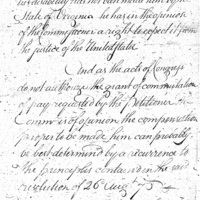 State of Virginia he has in the opinion
of the Commissioner a right to expect it from
the justice of the United States.
And as the acts of Congress
do not authorize the grant of commutation
of pay requested by the Petitioner
Commrs. of opinion the compensation
proper to be made him can probably
be best determined by a recurrence to
the principles contained in the said
resolution of 26 Augt.